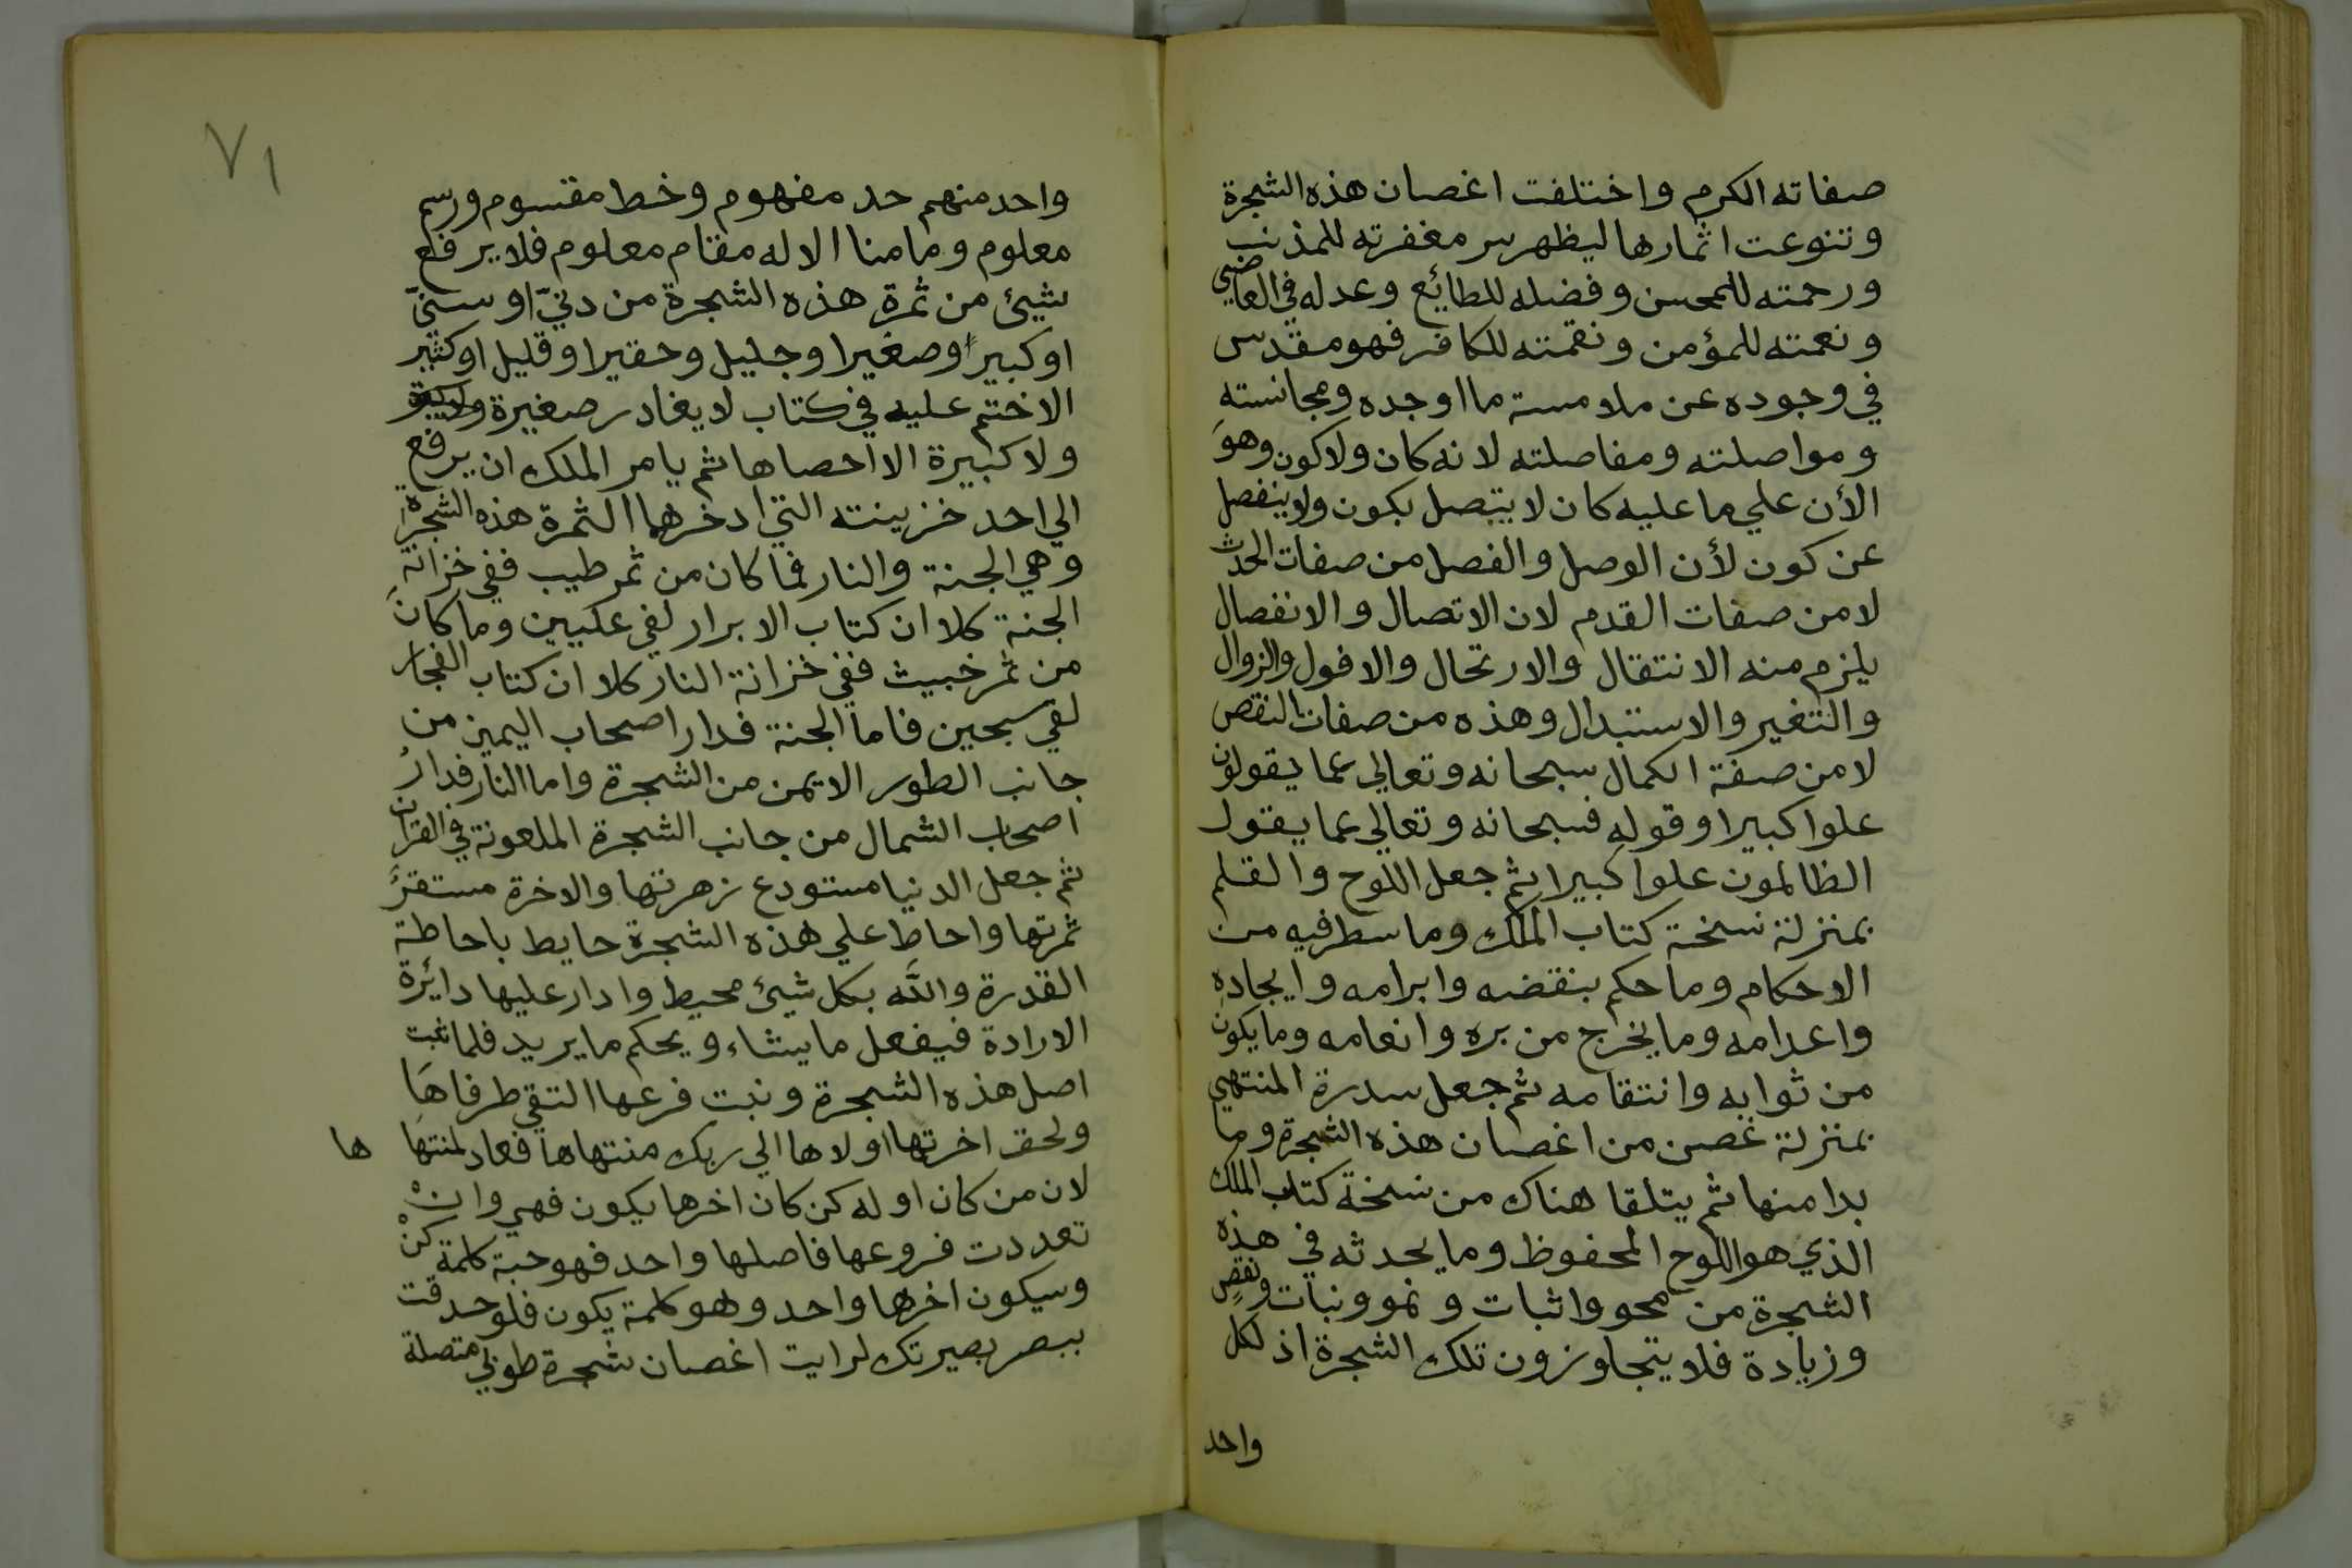 صفاته الكرم واختلفت اغصان هذه الشجرة
وتنوعت اثمارها ليظهر سر مغفرته للمذنب
ورحمته للمحسن وفضله للطائع وعدله في العاصي
ونعمته للمؤمن ونقمته للكافر فهو مقدس
في وجوده عن ملامسة ما اوجده ومجانسته
ومواصلته ومفاصلته لانه كان ولا كون وهو
الأن علي ما عليه كان لا يتصل بكون ولا ينفصل
عن كون لأن الوصل والفصل من صفات الحدث
لا من صفات القدم لان الاتصال والانفصال
يلزم منه الانتقال والارتحال والافول والزوال
والتغير والاستبدال وهذه من صفات النقص
لا من صفة الكمال سبحانه وتعالي عما يقولون
علوا كبيرا وقوله فسبحانه وتعالي عما يقول
الظالمون علوا كبيرا ثم جعل اللوح والقلم
بمنزلة نسخة كتاب الملك وما سطر فيه من
الاحكام وما حكم بنقضه وابرامه وايجاده
واعدامه وما يخرج من بره وانعامه وما يكون
من ثوابه وانتقامه ثم جعل سدرة المنتهي
بمنزلة غصن من اغصان هذه الشجرة وما
بدا منها ثم يتلقا هناك من نسخة كتاب الملك
الذي هو اللوح المحفوظ وما يحدثه في هذه
الشجرة من محو واثبات ونمو ونبات ونقص
وزيادة فلا يتجاوزون تلك الشجرة اذ لكل
واحد
٧١
واحد منهم حد مفهوم وخط مقسوم ورسم
معلوم وما منا الا له مقام معلوم فلا يرفع
شيئ من ثمرة هذه الشجرة من دنيّ او سنيّ
او كبيرا وصغيرا وجليل وحقيرا وقليل او كثير
الا ختم عليه في كتاب لا يغادر صغيرة
ولا كبيرة الا احصاها ثم يامر الملك ان يرفع
الي احد خزينته التي ادخرها الثمرة هذه الشجرة
وهي الجنة والنار فما كان من ثمر طيب ففي خزانة
الجنة كلا ان كتاب الابرار لفي عليين وما كان
من ثمر خبيث ففي خزانة النار كلا ان كتاب الفجار
لفي سجين فاما الجنة فدار اصحاب اليمين من
جانب الطور الايمن من الشجرة واما النار فدار
اصحاب الشمال من جانب الشجرة الملعونة في القران
ثم جعل الدنيا مستودع زهرتها والاخرة مستقر
ثمرتها واحاط علي هذه الشجرة حايط باحاطة
القدرة والله بكل شيئ محيط وادار عليها دائرة
الارادة فيفعل ما يشاء ويحكم ما يريد فلما ثبت
اصل هذه الشجرة ونبت فرعها التقي طرفاها
ولحق اخرتها اولاها الي ربك منتهاها فعاد لمنتها ها
لان من كان اوله كن كان اخرها يكون فهي وان
تعددت فروعها فاصلها واحد فهو حبة كلمة كن
وسيكون اخرها واحد وهو كلمة يكون فلو حدقت
ببصر بصيرتك لرايت اغصان شجرة طوبي متصلة